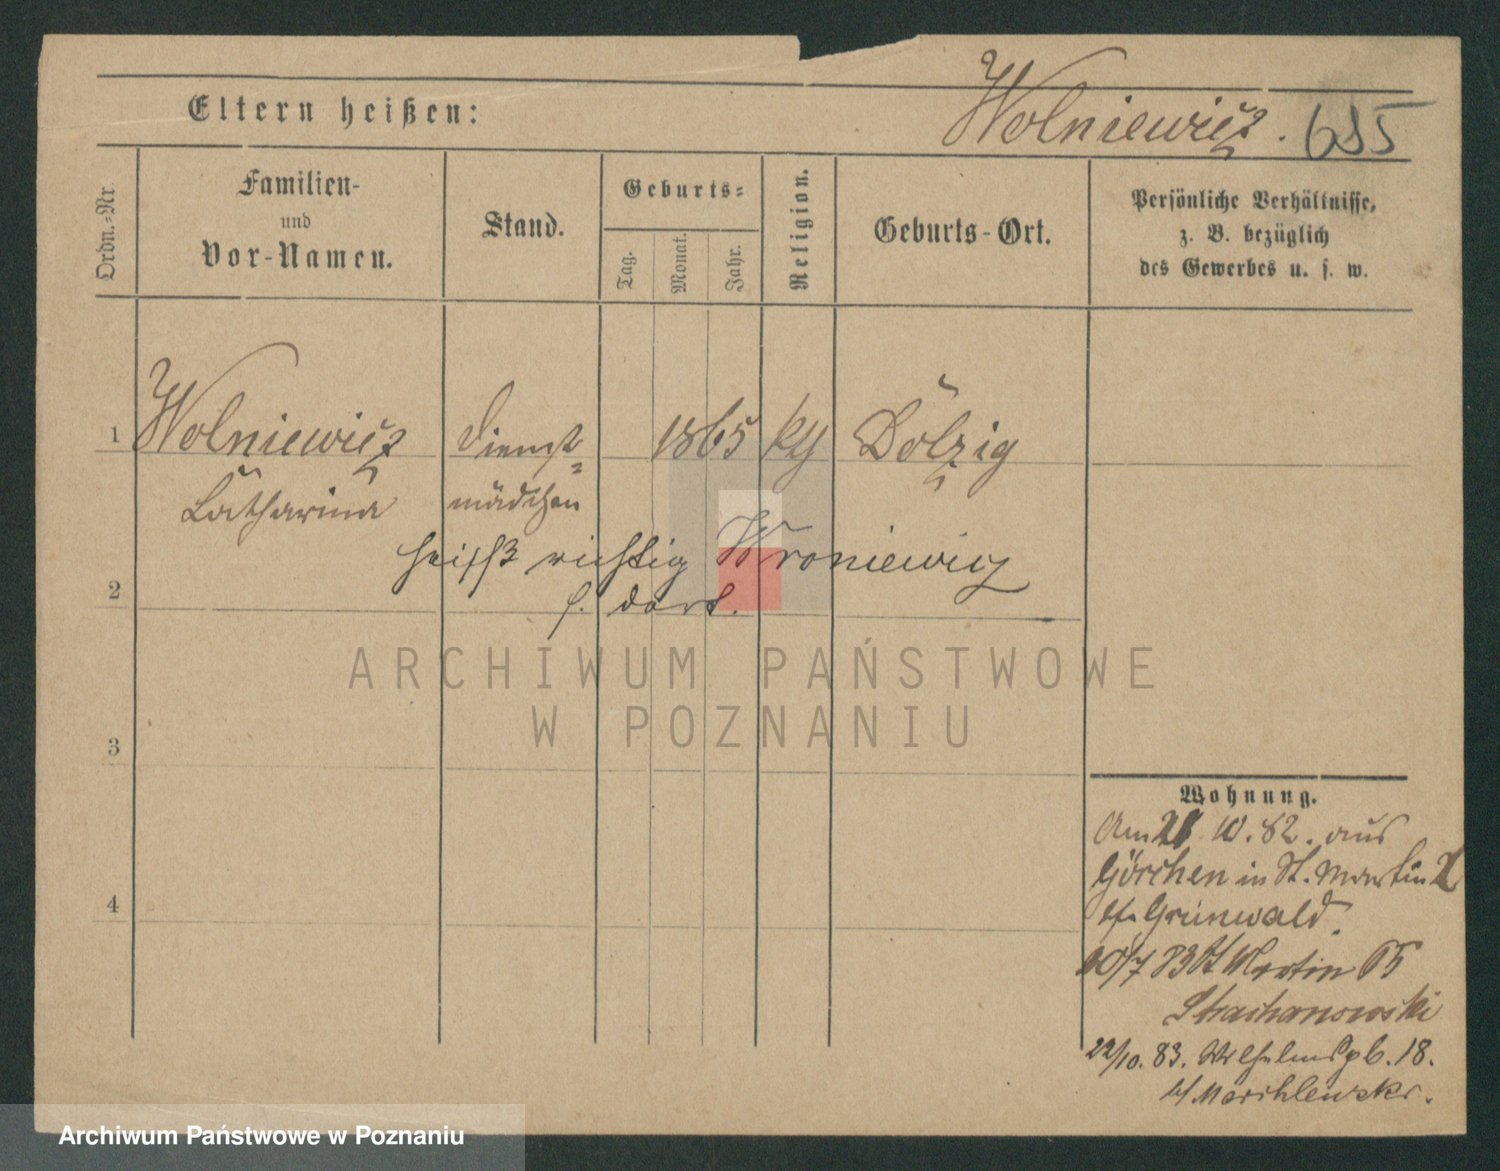 Eltern heißen:
Wolniewicz. 685
Ordn.-Nr
Familien-
und
Vor-Namen.
Stand.
Geburts-
Tag.
Monat.
Jahr.
Religion.
Geburts-Ort.
Persönliche Verhältnisse,
z. B. bezüglich
des Gewerbes u. s. w.
1 Wolniewicz Dienst= 1865 ky Dölzig
Catharina mädchen
heißt richtig Wroniewicz
2
s. dort.
ARCHIWUM PAŃSTWOWE
W POZNANIU
3
4
Wohnung.
Am 21 10. 82. aus
Görchen in St. Martin 2
Grünwald.
20/7 83 St Martin 65
Strachanowski
22/10. 83. Wilhelmspl. 18.
b/ Marchlewski.
Archiwum Państwowe w Poznaniu